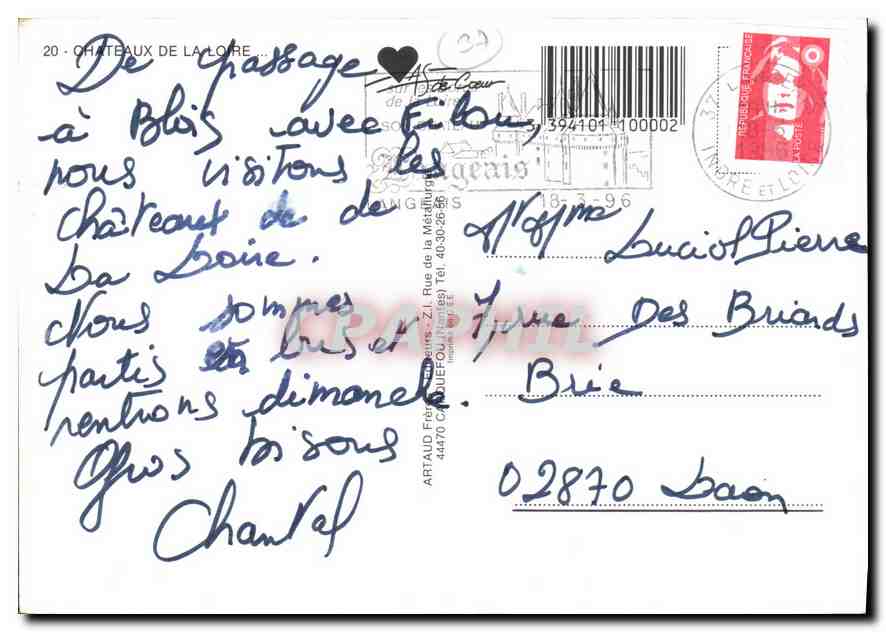 20 - CHATEAUX DE LA LOIRE ...
De passage
à Blois avec Filou,
nous visitons les
châteaux de de
La Loire.
Nous sommes
partis en bus et
rentrons dimanche.
Gros bisous
Chantal
AS de Coeur
37
3 394101 100002
LANGEAIS
18-3-96
37
INDRE ET LOIRE
REPUBLIQUE FRANÇAISE
LA POSTE
ARTAUD Frères Editeurs - Z.I. Rue de la Métallurgie
44470 CARQUEFOU (Nantes) Tél. 40-30-26-56
Mr Mme Luciot Pierre
7 rue Des Briards
Brie
02870 Laon
CPAPHIL